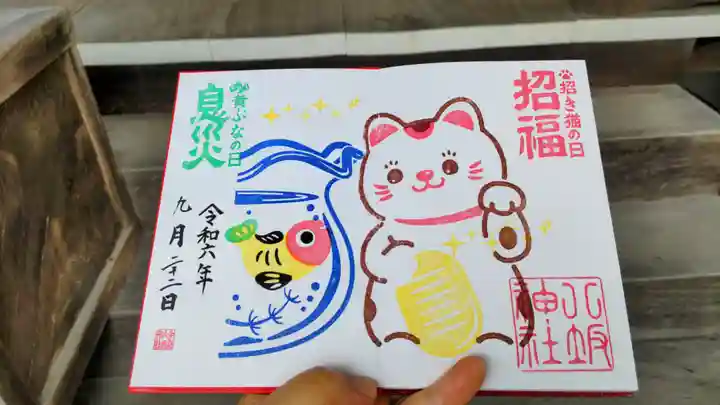 招き猫の日
招福
黄ぶなの日
息災
令和六年
九月二十二日
八坂
神社